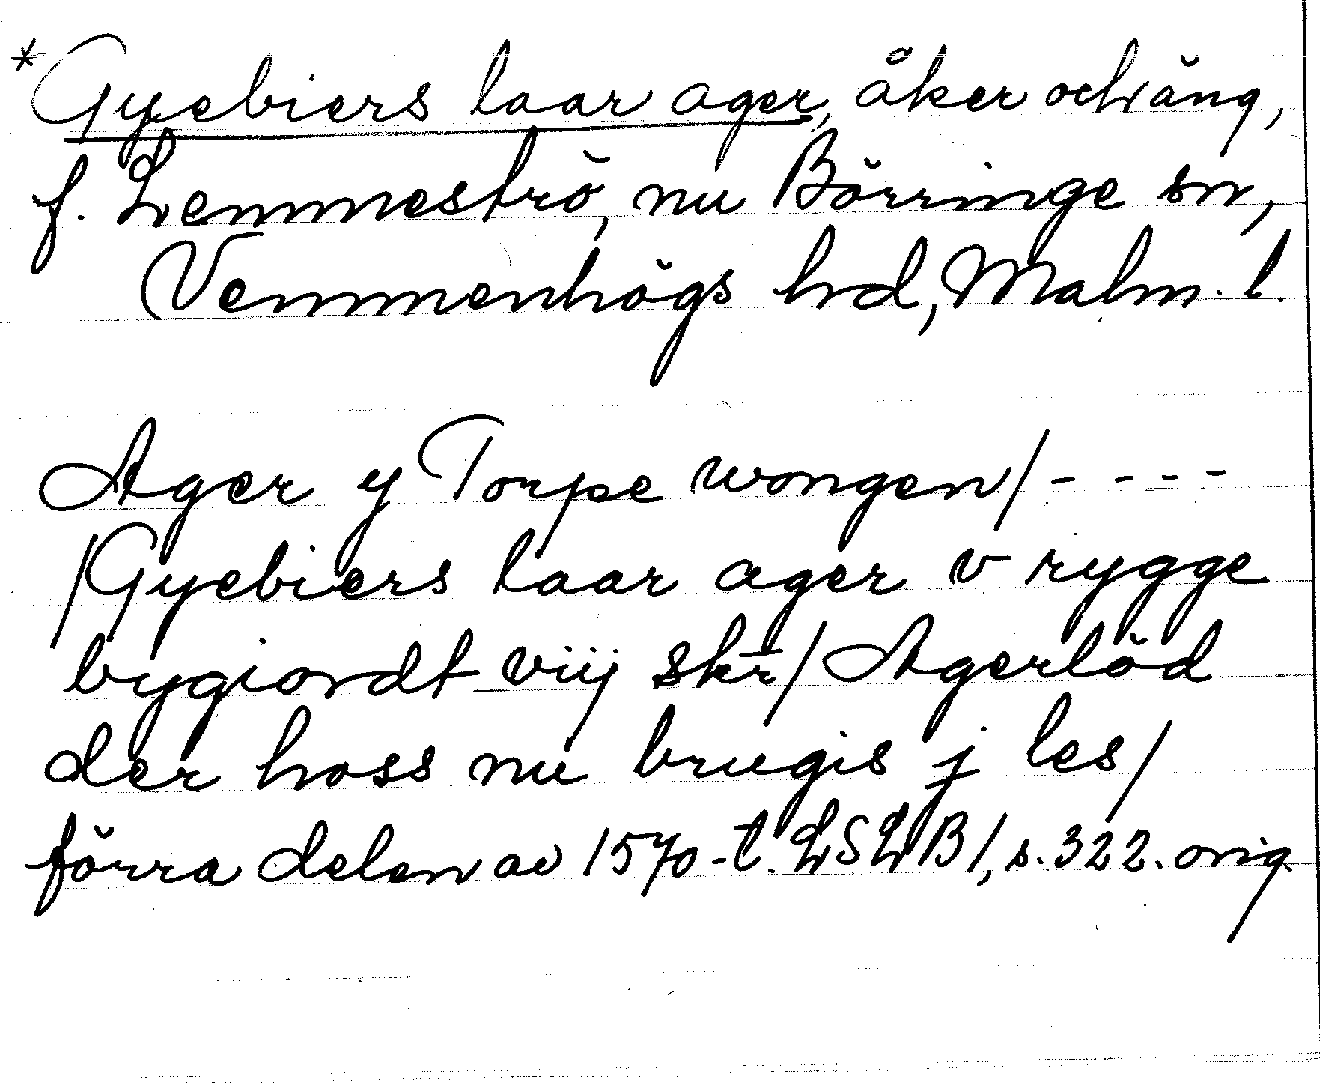 *Gyebiers laar ager, åker och äng,
f. Lemmeströ, nu Börringe sn,
Vemmenhögs hd, Malm. l.
Ager y Torpe wongen/ - - - -
/Gyebiers laar ager v rygge
bygiordt viij skr/ Agerlöd
der hoss nu brugis j les/
förra delen av 1570-t. LSLB 1, s. 322. orig